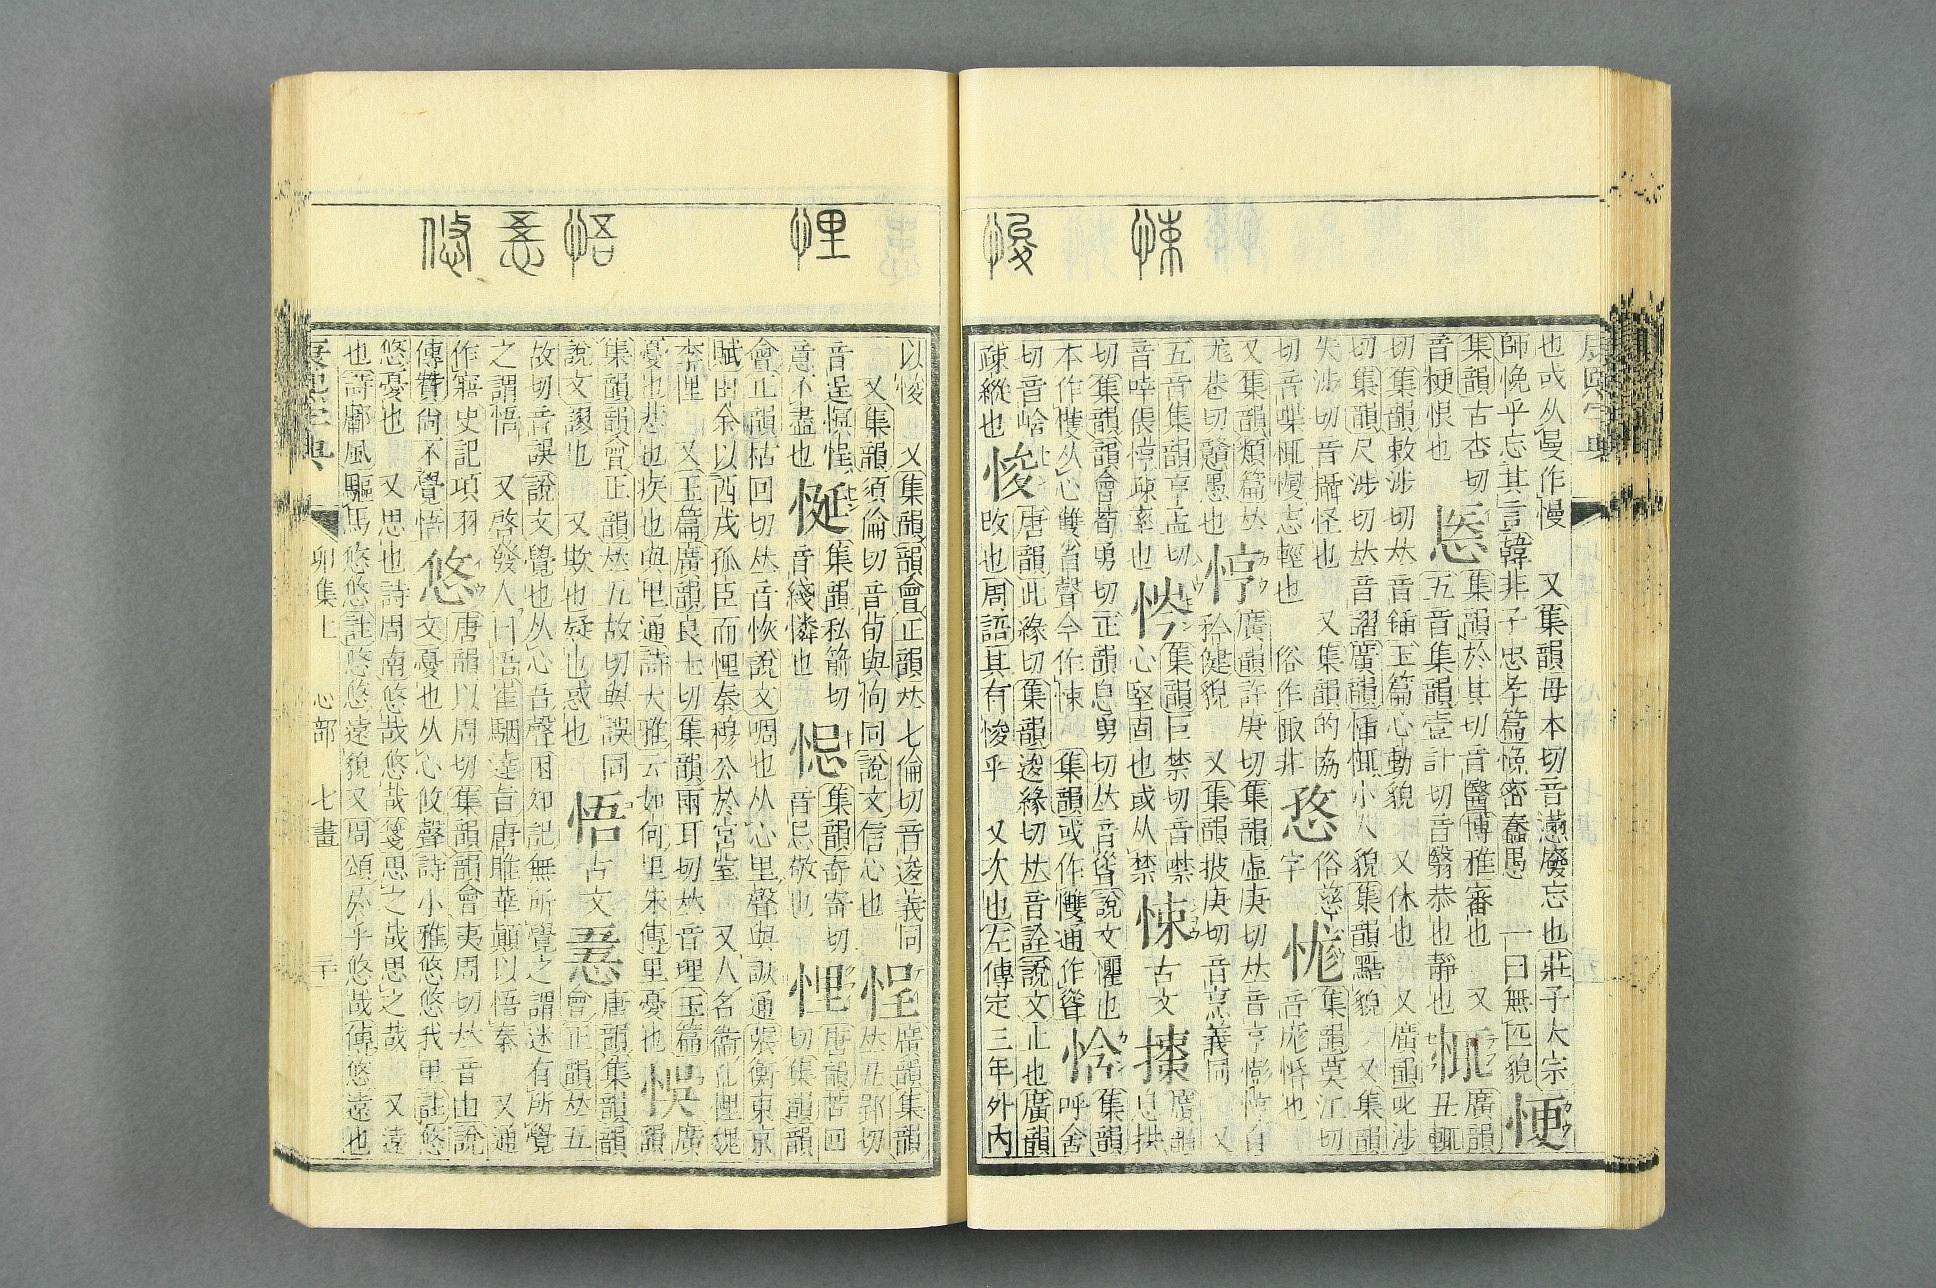 悚
悛
也或从曼作慢 又集韻母本切音懣廢忘也莊子大宗
師悗乎忘其言韓非子忠孝篇悗密蠢愚 一曰無匹貌
集韻古杏切 悘 集韻於其切音醫博雅審也 又 廣韻
音梗恨也 五音集韻壹計切音翳恭也靜也 丑輒
切集韻敕涉切𠀤音鍤玉篇心動貌 又休也 又廣韻叱涉
切集韻尺涉切𠀤音謵廣韻 小人貌集韻點貌 又集韻
失涉切音攝怪也 又集韻的協 俗慈 集韻莫江切
切音喋 慢志輕也 俗作 非 字 音厖惛也
又集韻類篇𠀤 悙 廣韻許庚切集韻虛庚切𠀤音亨 悙自
尨巷切戇愚也 矜健貌 又集韻披庚切音烹義同 又
五音集韻亨孟切 集韻巨禁切音噤 悚 古文 廣韻
音啈倀悙疎率也 心堅固也或从禁 息拱
切集韻韻會筍勇切正韻息勇切𠀤音聳說文懼也 集韻
本作㩳从心雙省聲今作悚 集韻或作㩳通作聳 呼含
切音㟏 悛 唐韻此緣切集韻逡緣切𠀤音詮說文止也廣韻
疎縱也 改也周語其有悛乎 又次也左傳定三年外內
悝
悟
悠
以悛 又集韻韻會正韻𠀤七倫切音逡義同 悜 廣韻集韻
又集韻須倫切音荀與恂同說文信心也 𠀤丑郢切
音逞 悜 集韻私箭切 集韻奇寄切 悝 唐韻苦回
意不盡也 音綫憐也 音忌敬也 切集韻韻
會正韻枯回切𠀤音恢說文啁也从心里聲與詼通張衡東京
賦由余以西戎孤臣而悝秦穆公於宮室 又人名衞孔悝魏
李悝 又玉篇廣韻良士切集韻兩耳切𠀤音理玉篇 悞 廣
憂也悲也疾也與里通詩大雅云如何里朱傳里憂也 韻
集韻韻會正韻𠀤五故切與誤同 悟 古文 唐韻集韻韻
說文謬也 又欺也疑也惑也 會正韻𠀤五
故切音誤說文覺也从心吾聲困知記無所覺之謂迷有所覺
之謂悟 又啓發人曰悟崔駰達旨唐睢華顚以悟秦 又通
作寤史記項羽 悠 唐韻以周切集韻韻會夷周切𠀤音由說
傳贊尙不覺悟 文憂也从心攸聲詩小雅悠悠我里註悠
悠憂也 又思也詩周南悠哉悠哉箋思之哉思之哉 又遠
也詩鄘風驅馬悠悠註悠悠遠貌又周頌於乎悠哉傳悠遠也
康熙字典 卯集上 心部 七畫